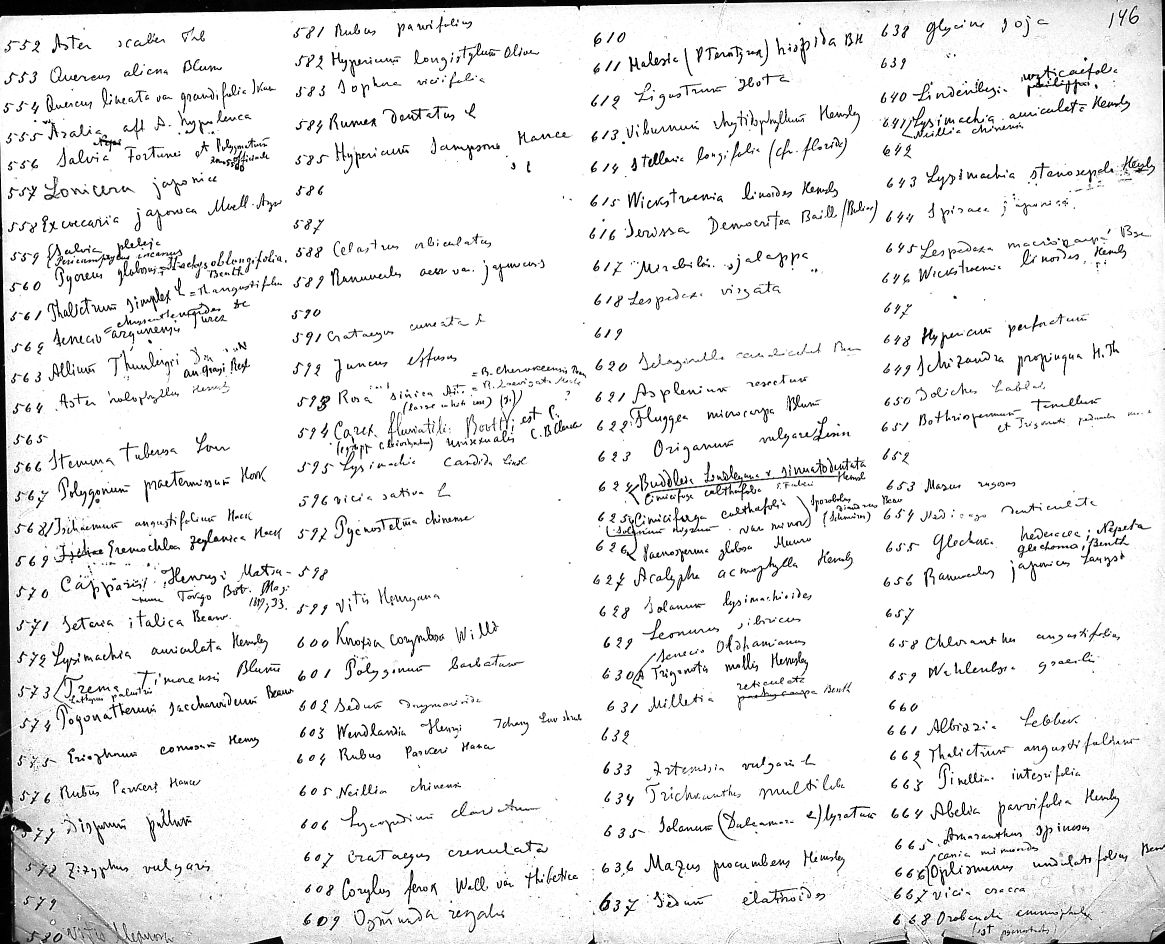 146
552 Aster scaber Thb
553 Quercus aliena Blum
554 Quercus lineata var grandifolia Skan
555 Aralia aff A. hypoleuca
556 Salvia Fortunei et Polygonatum officinale
557 Lonicera japonica
558 Excoecaria japonica Muell. Arg
559 Salvia plebeja
Pericampylus incanus
560 Pycreus globosus = Stachys oblongifolia Benth
561 Thalictrum simplex L = Th angustifolium
562 Senecio argunensis Turcz
563 Allium Thunbergii
564 Aster holophyllus Hemsl
565
566 Stemona tuberosa Lour
567 Polygonum praetermissum Hook
568 Ischaemum angustifolium Hack
569 Eremochloa zeylanica Hack
570 Capparis Henryi Matsu-
mura Tokyo Bot. Mag. 1899, 33.
571 Setaria italica Beauv.
572 Lysimachia auriculata Hemsley
573 Trema Timorensis Blume
Lathyrus palustris
574 Pogonatherum saccharoideum Beauv
575 Eriophorum comosum Henry
576 Rubus Parkeri Hance
577 Disporum pullum
578 Zizyphus vulgaris
579
580 Vitis
581 Rubus parvifolius
582 Hypericum longistylum Oliver
583 Sophora viciifolia
584 Rumex dentatus L
585 Hypericum Sampsoni Hance
586
587
588 Celastrus orbiculatus
589 Ranunculus acer va. japonicus
590
591 Crataegus cuneata L
592 Juncus effusus
593 Rosa sinica Ait = R. Cherokeensis
= R. laevigata ?
594 Carex fluviatilis Boott est C.
unisexualis C.B. Clarke
595 Lysimachia candida Lindl
596 vicia sativa L
597 Pycnostelma chinense
598
599 Vitis Henryana
600 Knoxia corymbosa Willd
601 Polygonum barbatum
602 Sedum drymarioides
603 Wendlandia Henryi Ichang
604 Rubus Parkeri Hance
605 Neillia chinensis
606 Lycopodium clavatum
607 Crataegus crenulata
608 Corylus ferox Wall va thibetica
609 Osmunda regalis
610
611 Halesia (Pterostyrax) hispida BH
612 Ligustrum Ibota
613 Viburnum rhytidophyllum Hemsley
614 Stellaria longifolia (ch. florida)
615 Wickstroemia linoides Hemsly
616 Serissa Democritea Baill
617 Mirabilis jalappa
618 Lespedeza virgata
619
620 Selaginella
621 Asplenium resectum
622 Fluggea microcarpa Blum
623 Origanum vulgare Linn
624 Buddleia Lindleyana v. sinuatodentata Hemsl
Cimicifuga calthaefolia
625 Cimicifuga calthaefolia
Solanum nigrum var minor
Sporobolus Beauv
626 Phaenosperma globosa Munro
627 Acalypha acmophylla Hemsly
628 Solanum lysimachioides
629 Leonurus sibiricus
Senecio Oldhamianus
630 Trigonotis mollis Hemsley
631 Milletia reticulata Benth
632
633 Artemisia vulgaris L
634 Trichosanthes multiloba
635 Solanum (Dulcamara L) lyratum
636 Mazus procumbens Hemsley
637 Sedum elatinoides
638 Glycine soja
639 "
640 Lindenbergia urticaefolia
641 Lysimachia auriculata Hemsly
Neillia chinensis
642
643 Lysimachia stenosepala Hemsly
644 Spiraea japonica
645 Lespedeza macrocarpa Bge
646 Wickstroemia linoides Hemsly
647
648 Hypericum perforatum
649 Schizandra propinqua H. Th
650 Dolichos Lablab
651 Bothriospermum tenellum
et Trigonotis
652
653 Mazus rugosus
654 Medicago denticulata
655 Glechoma hederacea, Nepeta
glechoma, Benth
656 Ranunculus japonicus Langsd
657
658 Chloranthus angustifolius
659 Wahlenbergia gracilis
660
661 Albizzia Lebbek
662 Thalictrum angustifolium
663 Pinellia integrifolia
664 Abelia parvifolia Hemsly
665 Amaranthus spinosus
Cassia mimosoides
666 Oplismenus undulatifolius Beauv
667 Vicia cracca
668 Orobanche ammophila